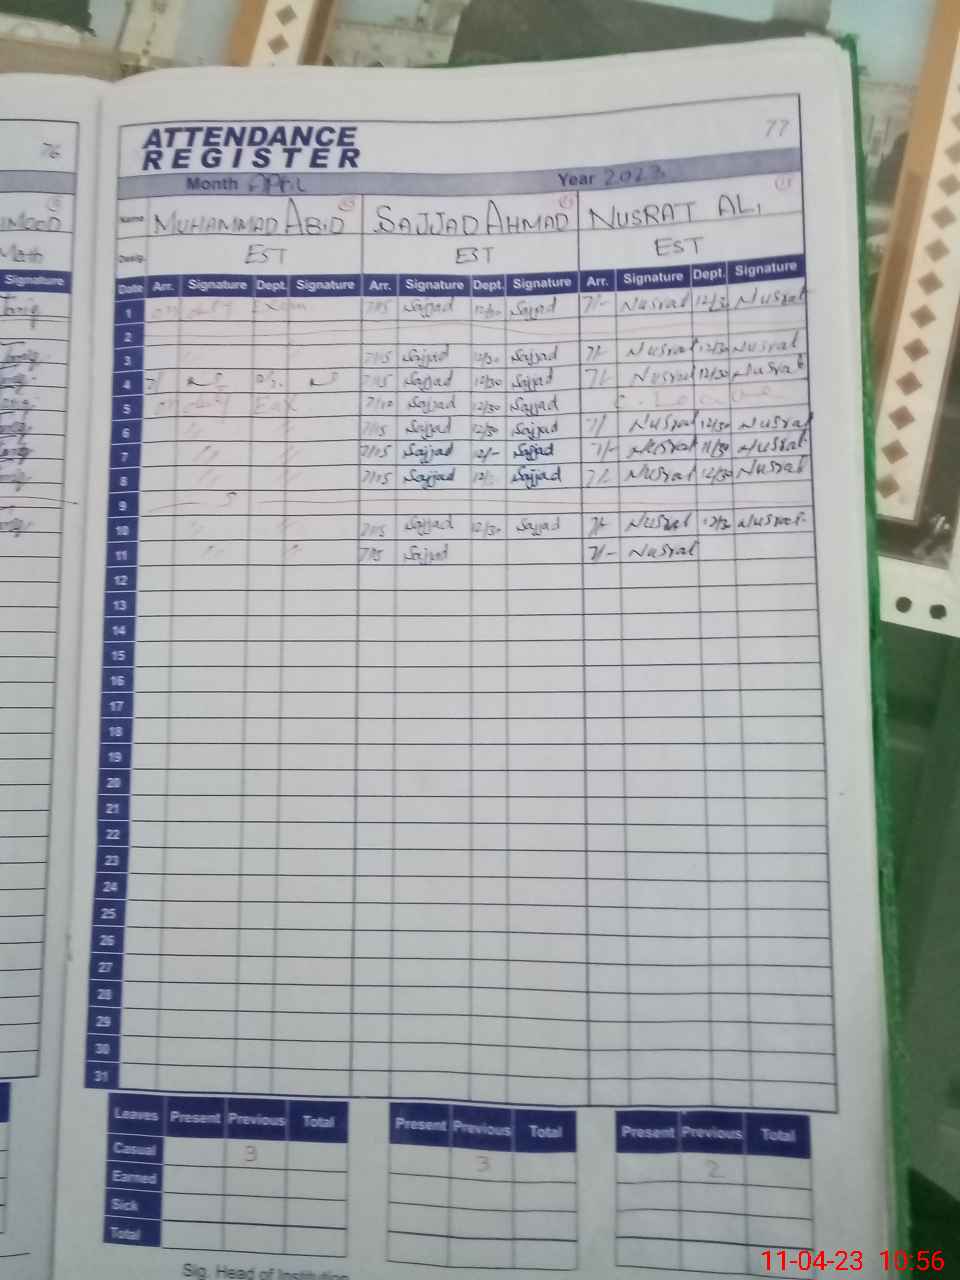 76
77
ATTENDANCE
REGISTER
Month April Year 2023
Name MUHAMMAD ABID SAJJAD AHMAD NUSRAT ALI
Desig. EST EST EST
Math
Signature
Date Arr. Signature Dept. Signature Arr. Signature Dept. Signature Arr. Signature Dept. Signature
1 on duty Exam 7/15 Sajjad 12/30 Sajjad 7/- Nusrat 12/30 Nusrat
2
3 7/15 Sajjad 12/30 Sajjad 7/- Nusrat 12/30 Nusrat
4 7/ 7/15 Sajjad 12/30 Sajjad 7/- Nusrat 12/30 Nusrat
5 on duty 7/10 Sajjad 12/30 Sajjad C. Leave
6 〃 〃 7/15 Sajjad 12/30 Sajjad 7/ Nusrat 12/30 Nusrat
7 〃 〃 7/15 Sajjad 12/- Sajjad 7/- Nusrat 11/30 Nusrat
8 〃 〃 7/15 Sajjad 12/ Sajjad 7/- Nusrat 12/30 Nusrat
9 S
10 〃 〃 7/15 Sajjad 12/30 Sajjad 7/- Nusrat 12/30 Nusrat
11 〃 〃 7/15 Sajjad 7/- Nusrat
12
13
14
15
16
17
18
19
20
21
22
23
24
25
26
27
28
29
30
31
Leaves Present Previous Total Present Previous Total Present Previous Total
Casual 3 3 2
Earned
Sick
Total
Sig. Head of Institution
11-04-23 10:56